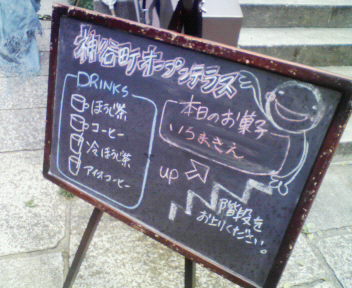 神谷町オープンテラス
DRINKS
ほうじ茶
コーヒー
冷ほうじ茶
アイスコーヒー
本日のお菓子
up
階段を
お上りください。